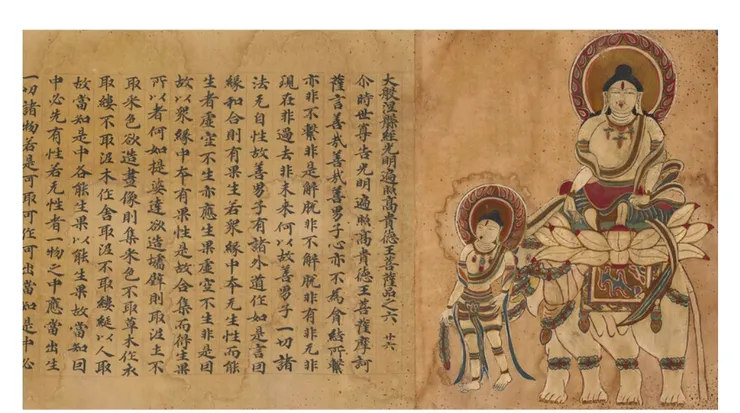 大般涅槃經光明遍照高貴德王菩薩品之六 廿六
尒時世尊告光明遍照高貴德王菩薩摩訶
薩言善哉善哉善男子心亦不為貪結所繫
亦非不繫非是解脫非不解脫非有非无非
現在非過去非未來何以故善男子一切諸
法无自性故善男子有諸外道作如是言因
緣和合則有果生若衆緣中本无生性而能
生者虛空不生亦應生果虛空不生非是因
故以衆緣中本有果性是故合集而得生果
所以者何如提婆達欲造墻鉼則取泥土不
取采色欲造畫像則集采色不取草木作衣
取縷不取泥木作舍取泥不取縷綖以人取
故當知是中各能生果以能生果故當知因
中必先有性若无性者一物之中應當出生
一切諸物若是可取可作可出當知是中必